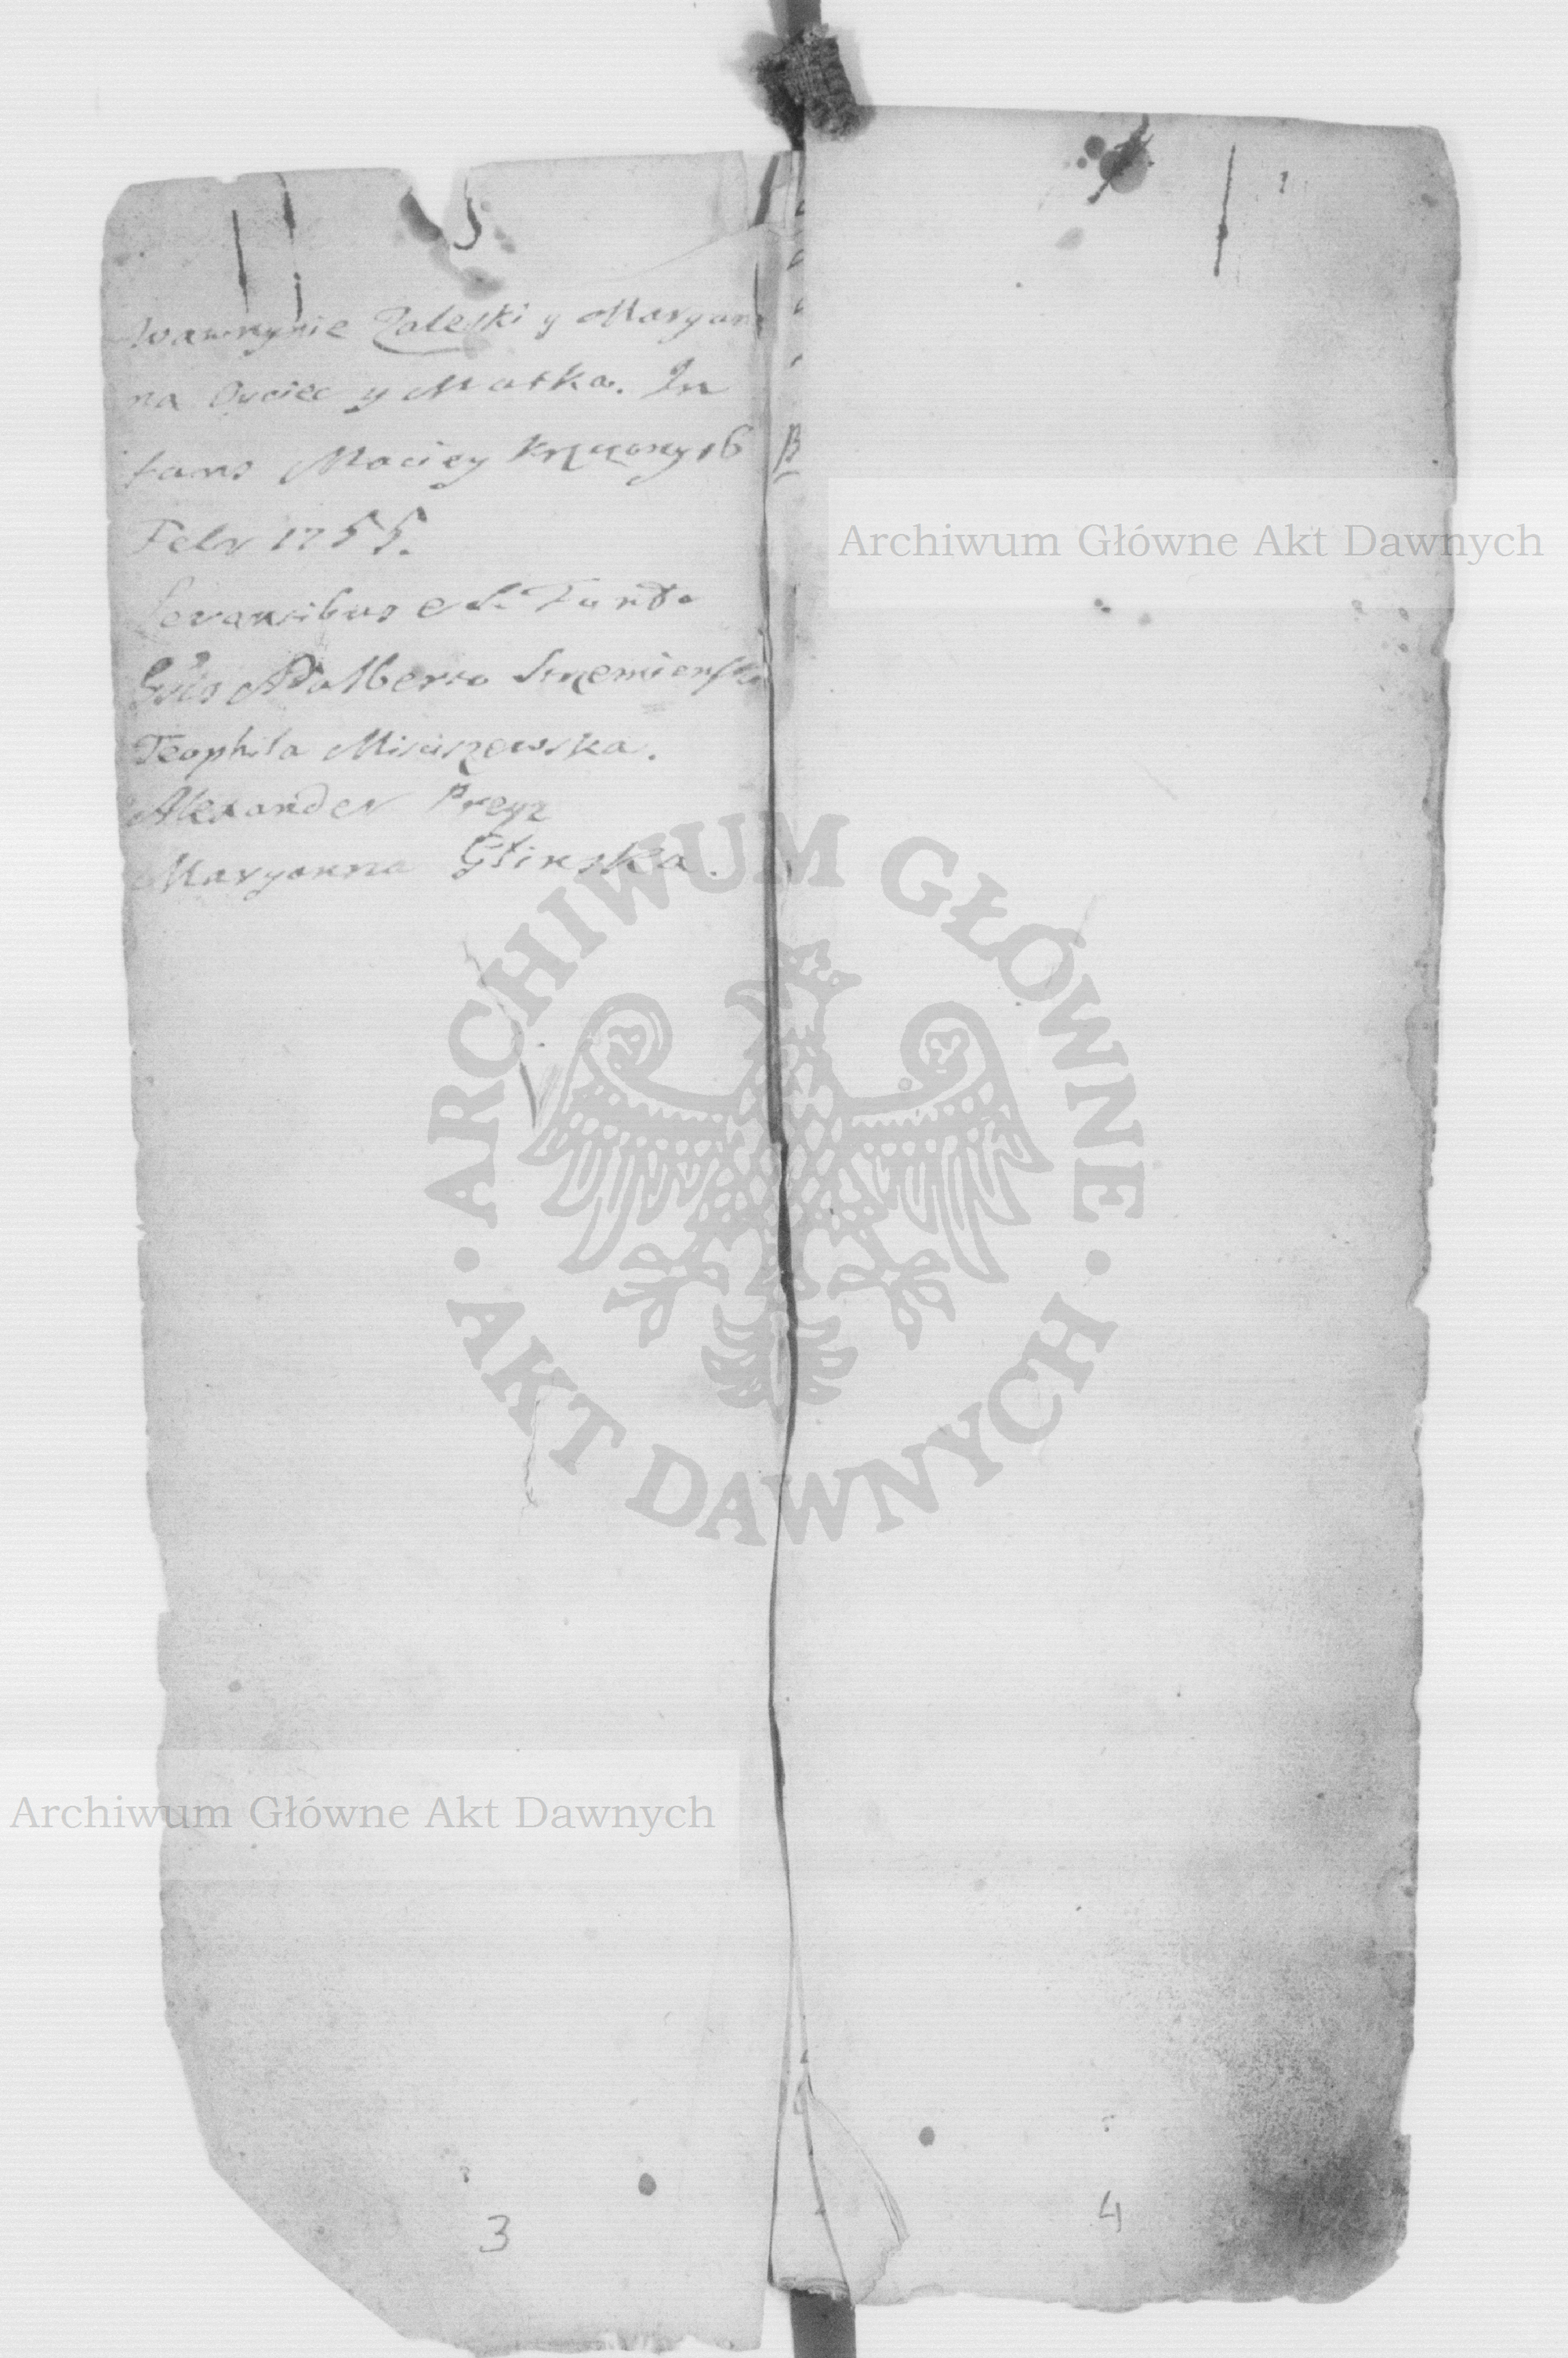 Wawrzynie Zaleski y Maryan
na Oyciec y Matka. In
fans Maciey krzczony 16
Febr 1755.
Levantibus e S. Fonte
Adalberto
Teophila Misiszewska.
Alexander Preyz
Maryanna Glinska.
3
4
Archiwum Główne Akt Dawnych
ARCHIWUM GŁÓWNE
AKT DAWNYCH
Archiwum Główne Akt Dawnych